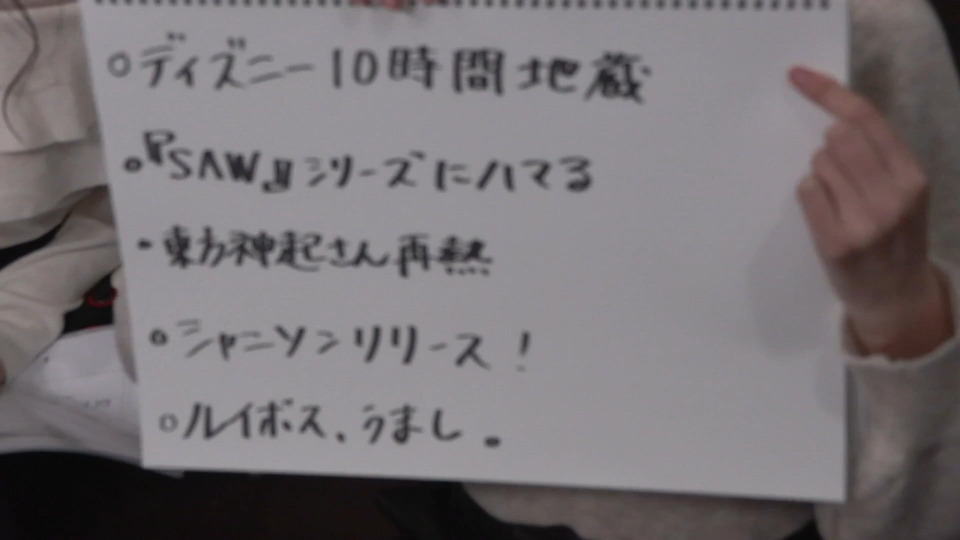 ○ディズニー10時間地蔵
○『SAW』シリーズにハマる
・東方神起さん再熱
○シャニソンリリース!
○ルイボス、うまし。